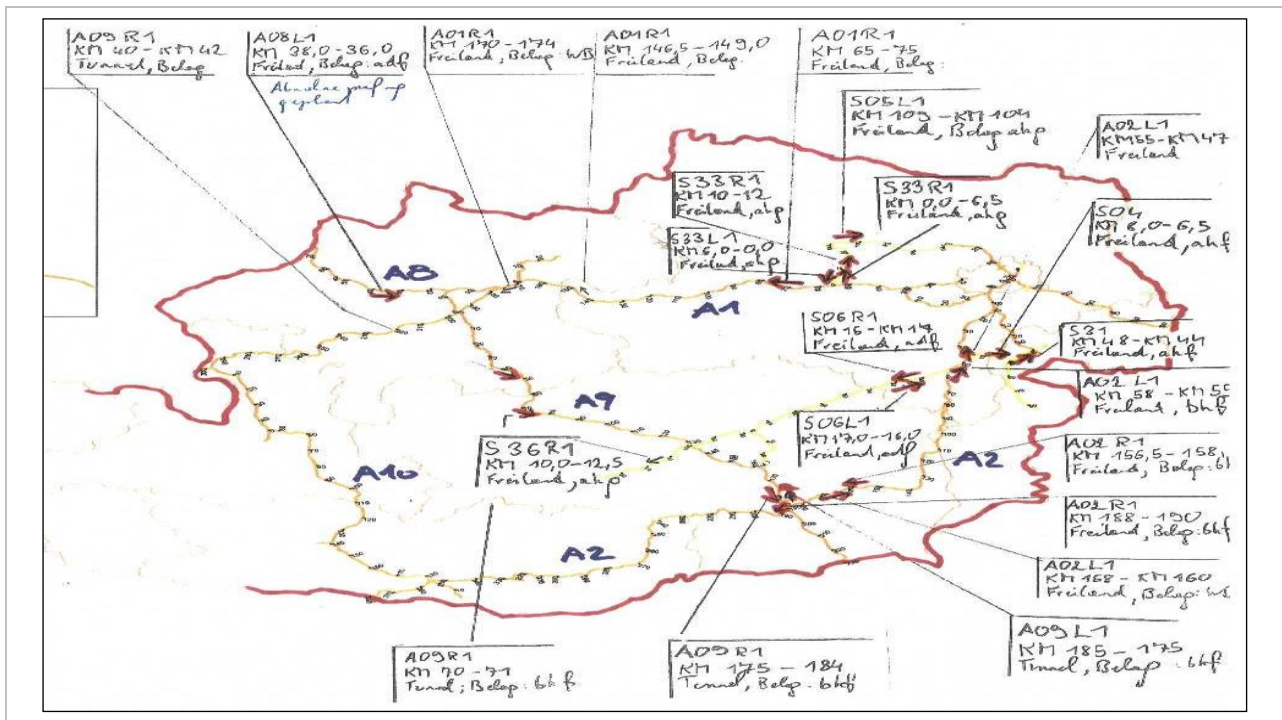 A09 R1
KM 40 - KM 42
Tunnel, Belag
A08 L1
KM 38,0 - 36,0
Freiland, Belag: adf
geplant
A01R1
KM 170 - 174
Freiland, Belag: WB
A01R1
KM 146,5 - 149,0
Freiland, Belag:
A01R1
KM 65 - 75
Freiland, Belag:
S05 L1
KM 109 - KM 104
Freiland, Belag ahp
A02 L1
KM55 - KM 47
Freiland
S33 R1
KM 10 - 12
Freiland, ahp
S33 R1
KM 0,0 - 6,5
Freiland, ahp
S04
KM 8,0 - 6,5
Freiland, ahf
S33 L1
KM 6,0 - 0,0
Freiland, ahp
A8
A1
S06 R1
KM 16 - KM 17
Freiland, adf
S31
KM 48 - KM 44
Freiland, ahf
A02 L1
KM 58 - KM 55
Freiland, bhf
A9
S06 L1
KM 17,0 - 16,0
Freiland, adf
A02 R1
KM 156,5 - 158,
Freiland, Belag:
S 36 R1
KM 10,0 - 12,5
Freiland, ahp
A2
A10
A02 R1
KM 188 - 190
Freiland, Belag: bhf
A2
A02 L1
KM 168 - KM 160
Freiland, Belag:
A09 R1
KM 70 - 71
Tunnel, Belag: bhf
A09 R1
KM 175 - 184
Tunnel, Belag: bhf
A09 L1
KM 185 - 175
Tunnel, Belag: bhf